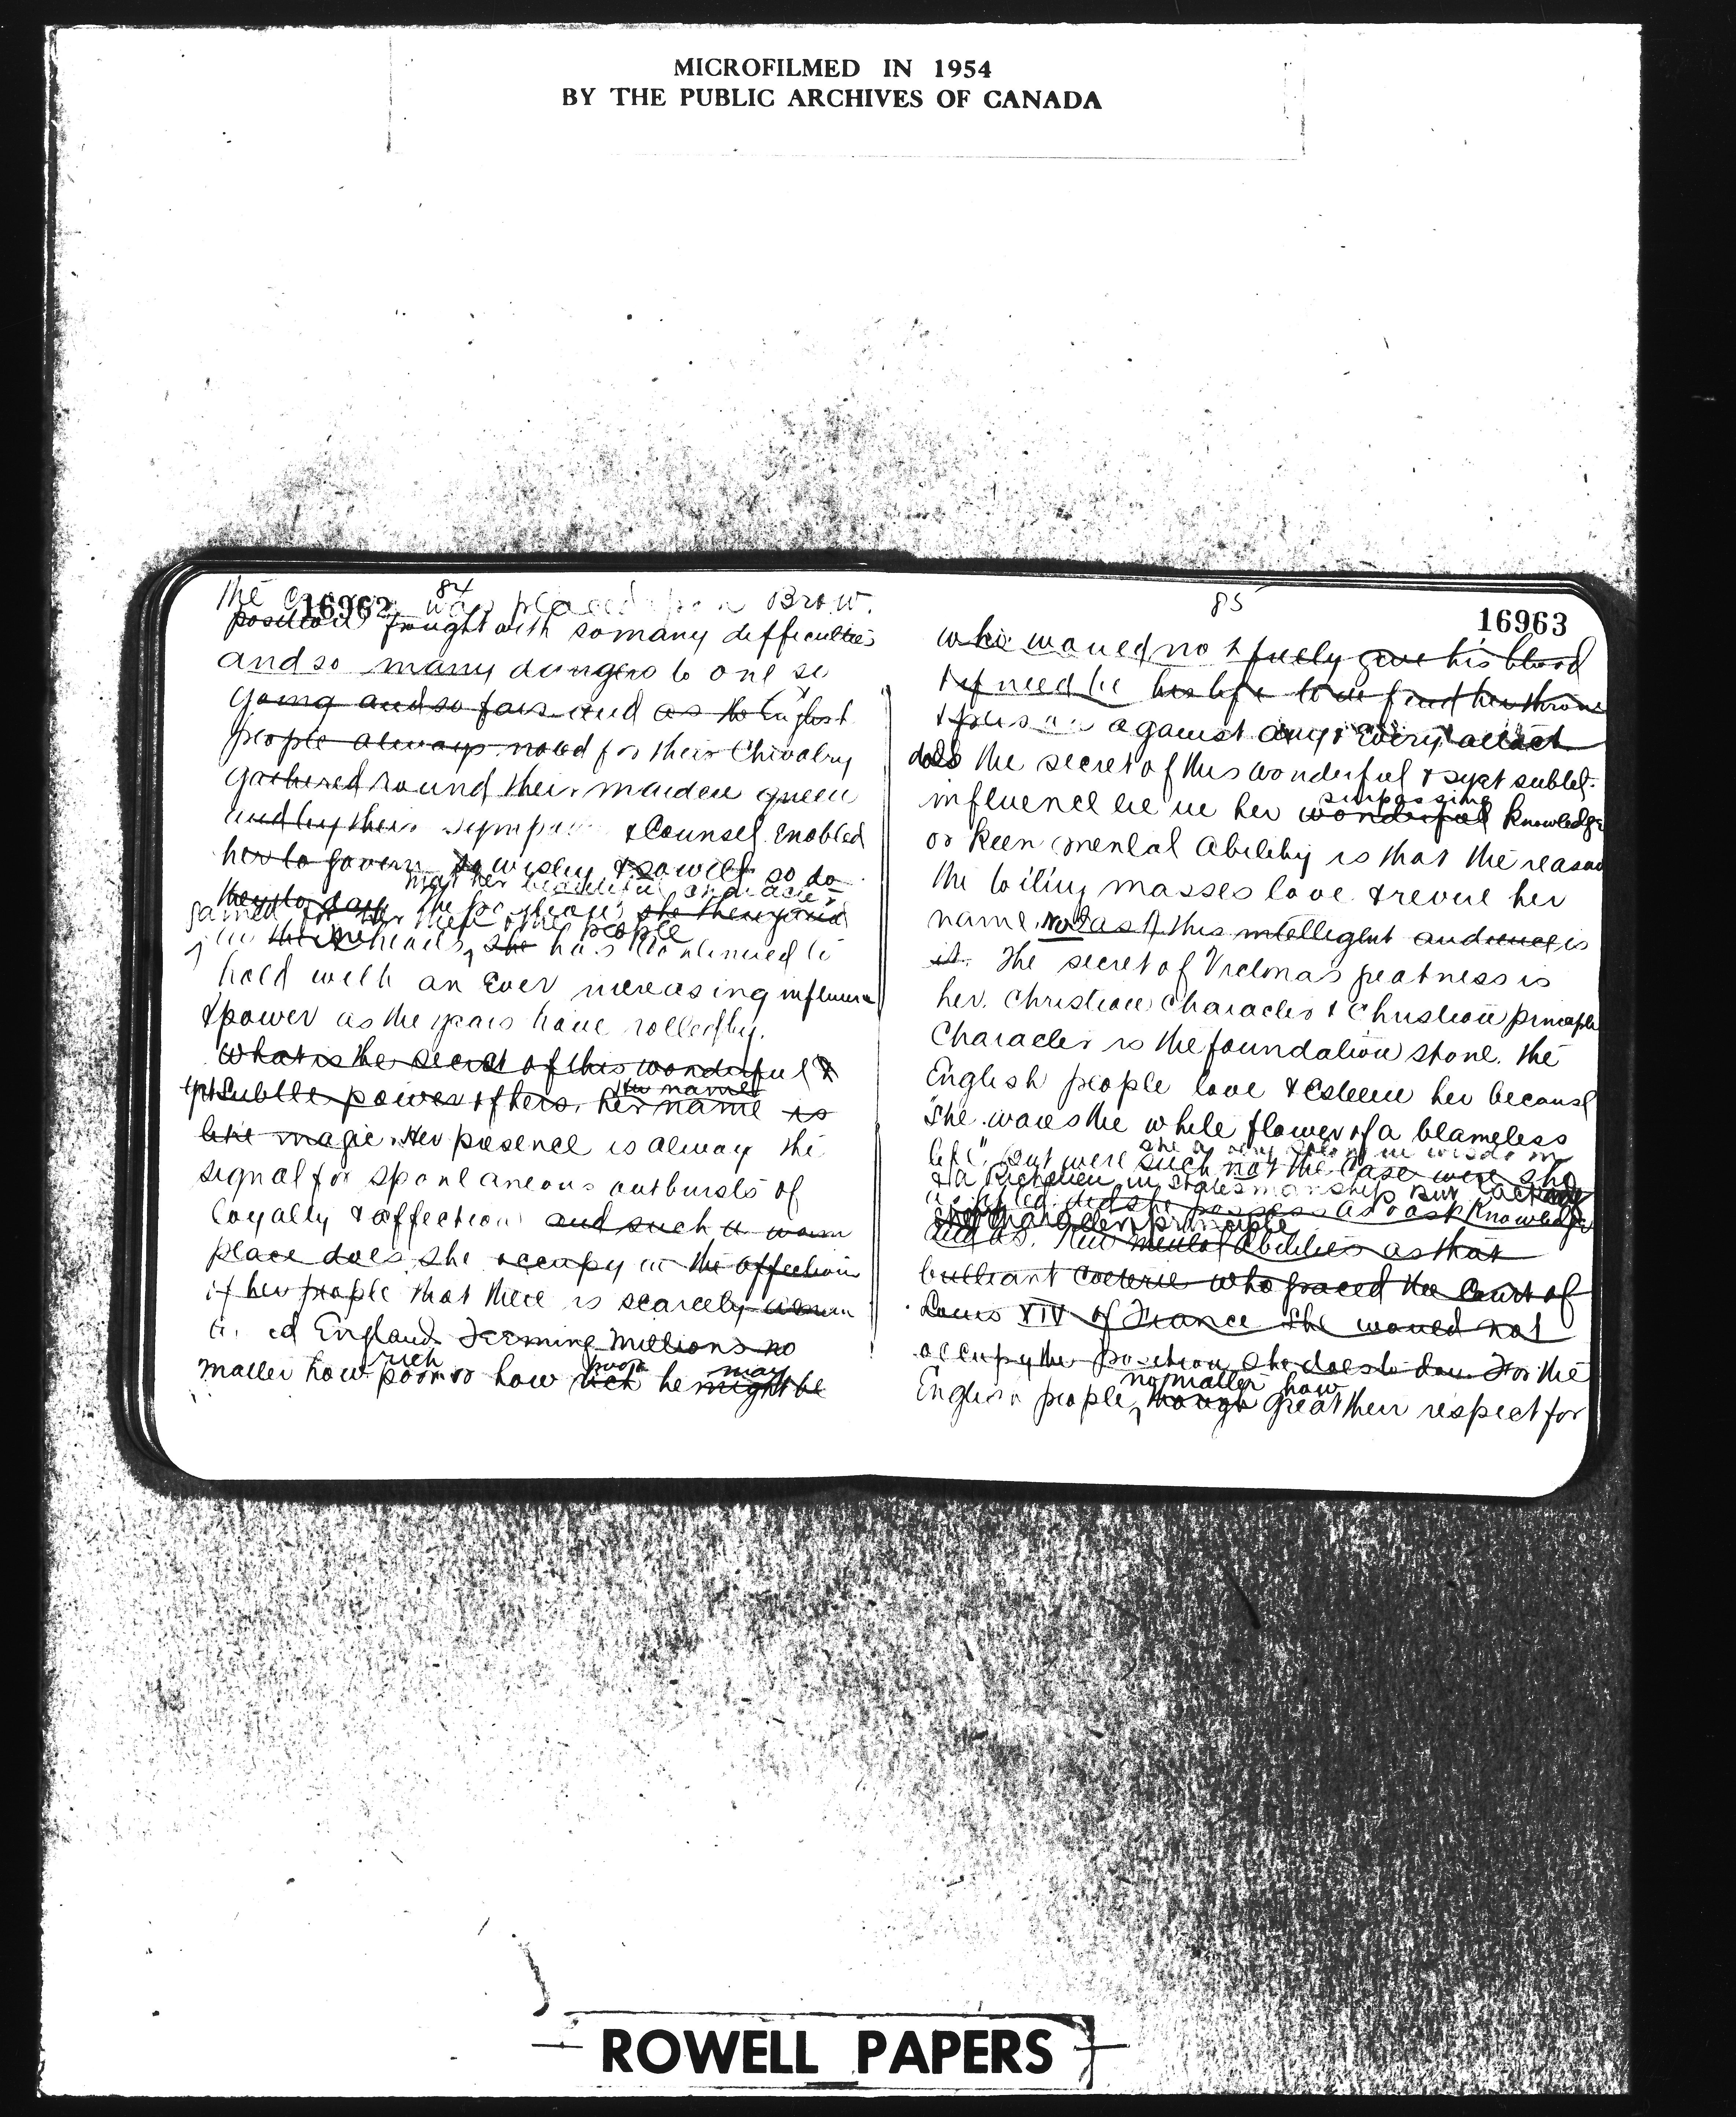 MICROFILMED IN 1954
BY THE PUBLIC ARCHIVES OF CANADA
84
16962
the was placed Brow.
position fraught with so many difficulties
and so many dangers to one so
young and so fair and as the English
people always noted for their Chivalry
gathered round their maiden queen
and by their & Counsel enabled
her to govern so wisely & so well so do
they to day the
her beautiful character
she then gained
gained for her
people
in the hearts, she has continued to
hold with an Ever increasing influence
& power as the years have rolled by.
What is the secret of this wonderful &
yet Subtle power of hers. her name is
the name
like magic. Her presence is alway the
signal for spontaneous outbursts of
loyalty & affection and such a warm
place does she occupy in the affection
of her people that there is scarcely a man
England teeming millions no
rich poor may
matter how poor or how rich he might be
85
16963
who would not freely give his blood
& if need be his life to defend her throne
& person against any & every attack
does the secret of this wonderful & yet subtle
surpassing
influence lie in her wonderful knowledge
or keen mental ability is that the reason
the toiling masses love & revere her
name. not as this intelligent audience is
it. The secret of Victorias greatness is
her Christian Character & Christian principle
Character is the foundation stone. The
English people love & Esteem her because
"She wears the white flower of a blameless
life". But were such not the case were she
she a very in wisdom
& a Richelieu in statesmanship but lacking
did she possess as vast knowledge
character principle
and as mental abilities as that
brilliant coeterie who graced the Court of
Louis XIV of France She would not
occupy the position she does to day. For the
no matter how
English people, though great their respect for
ROWELL PAPERS